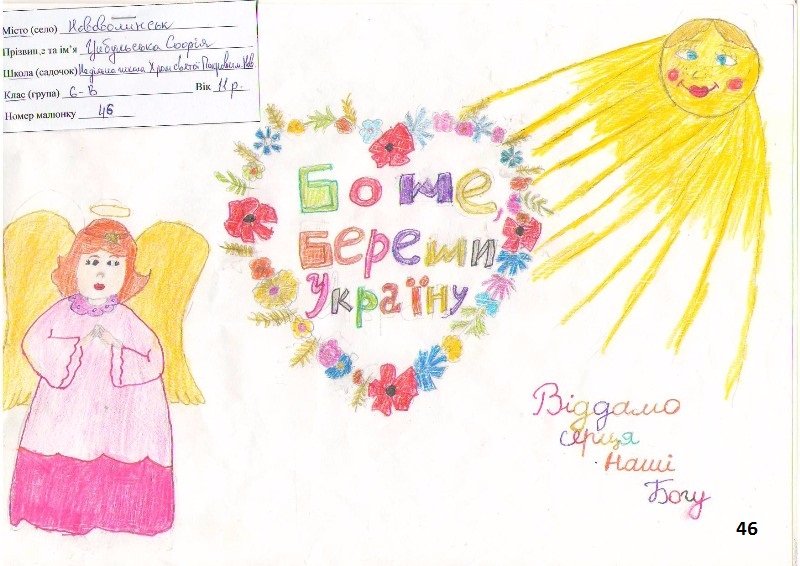 Місто (село) Нововолинськ
Прізвище та ім'я Цибульська Софія
Школа (садочок) Недільна школа Храм святої Покрови м. Нов.
Клас (група) 6-В Вік 11 р.
Номер малюнку 46
Боже
Бережи
Україну
Віддамо
серця
Наші
Богу
46